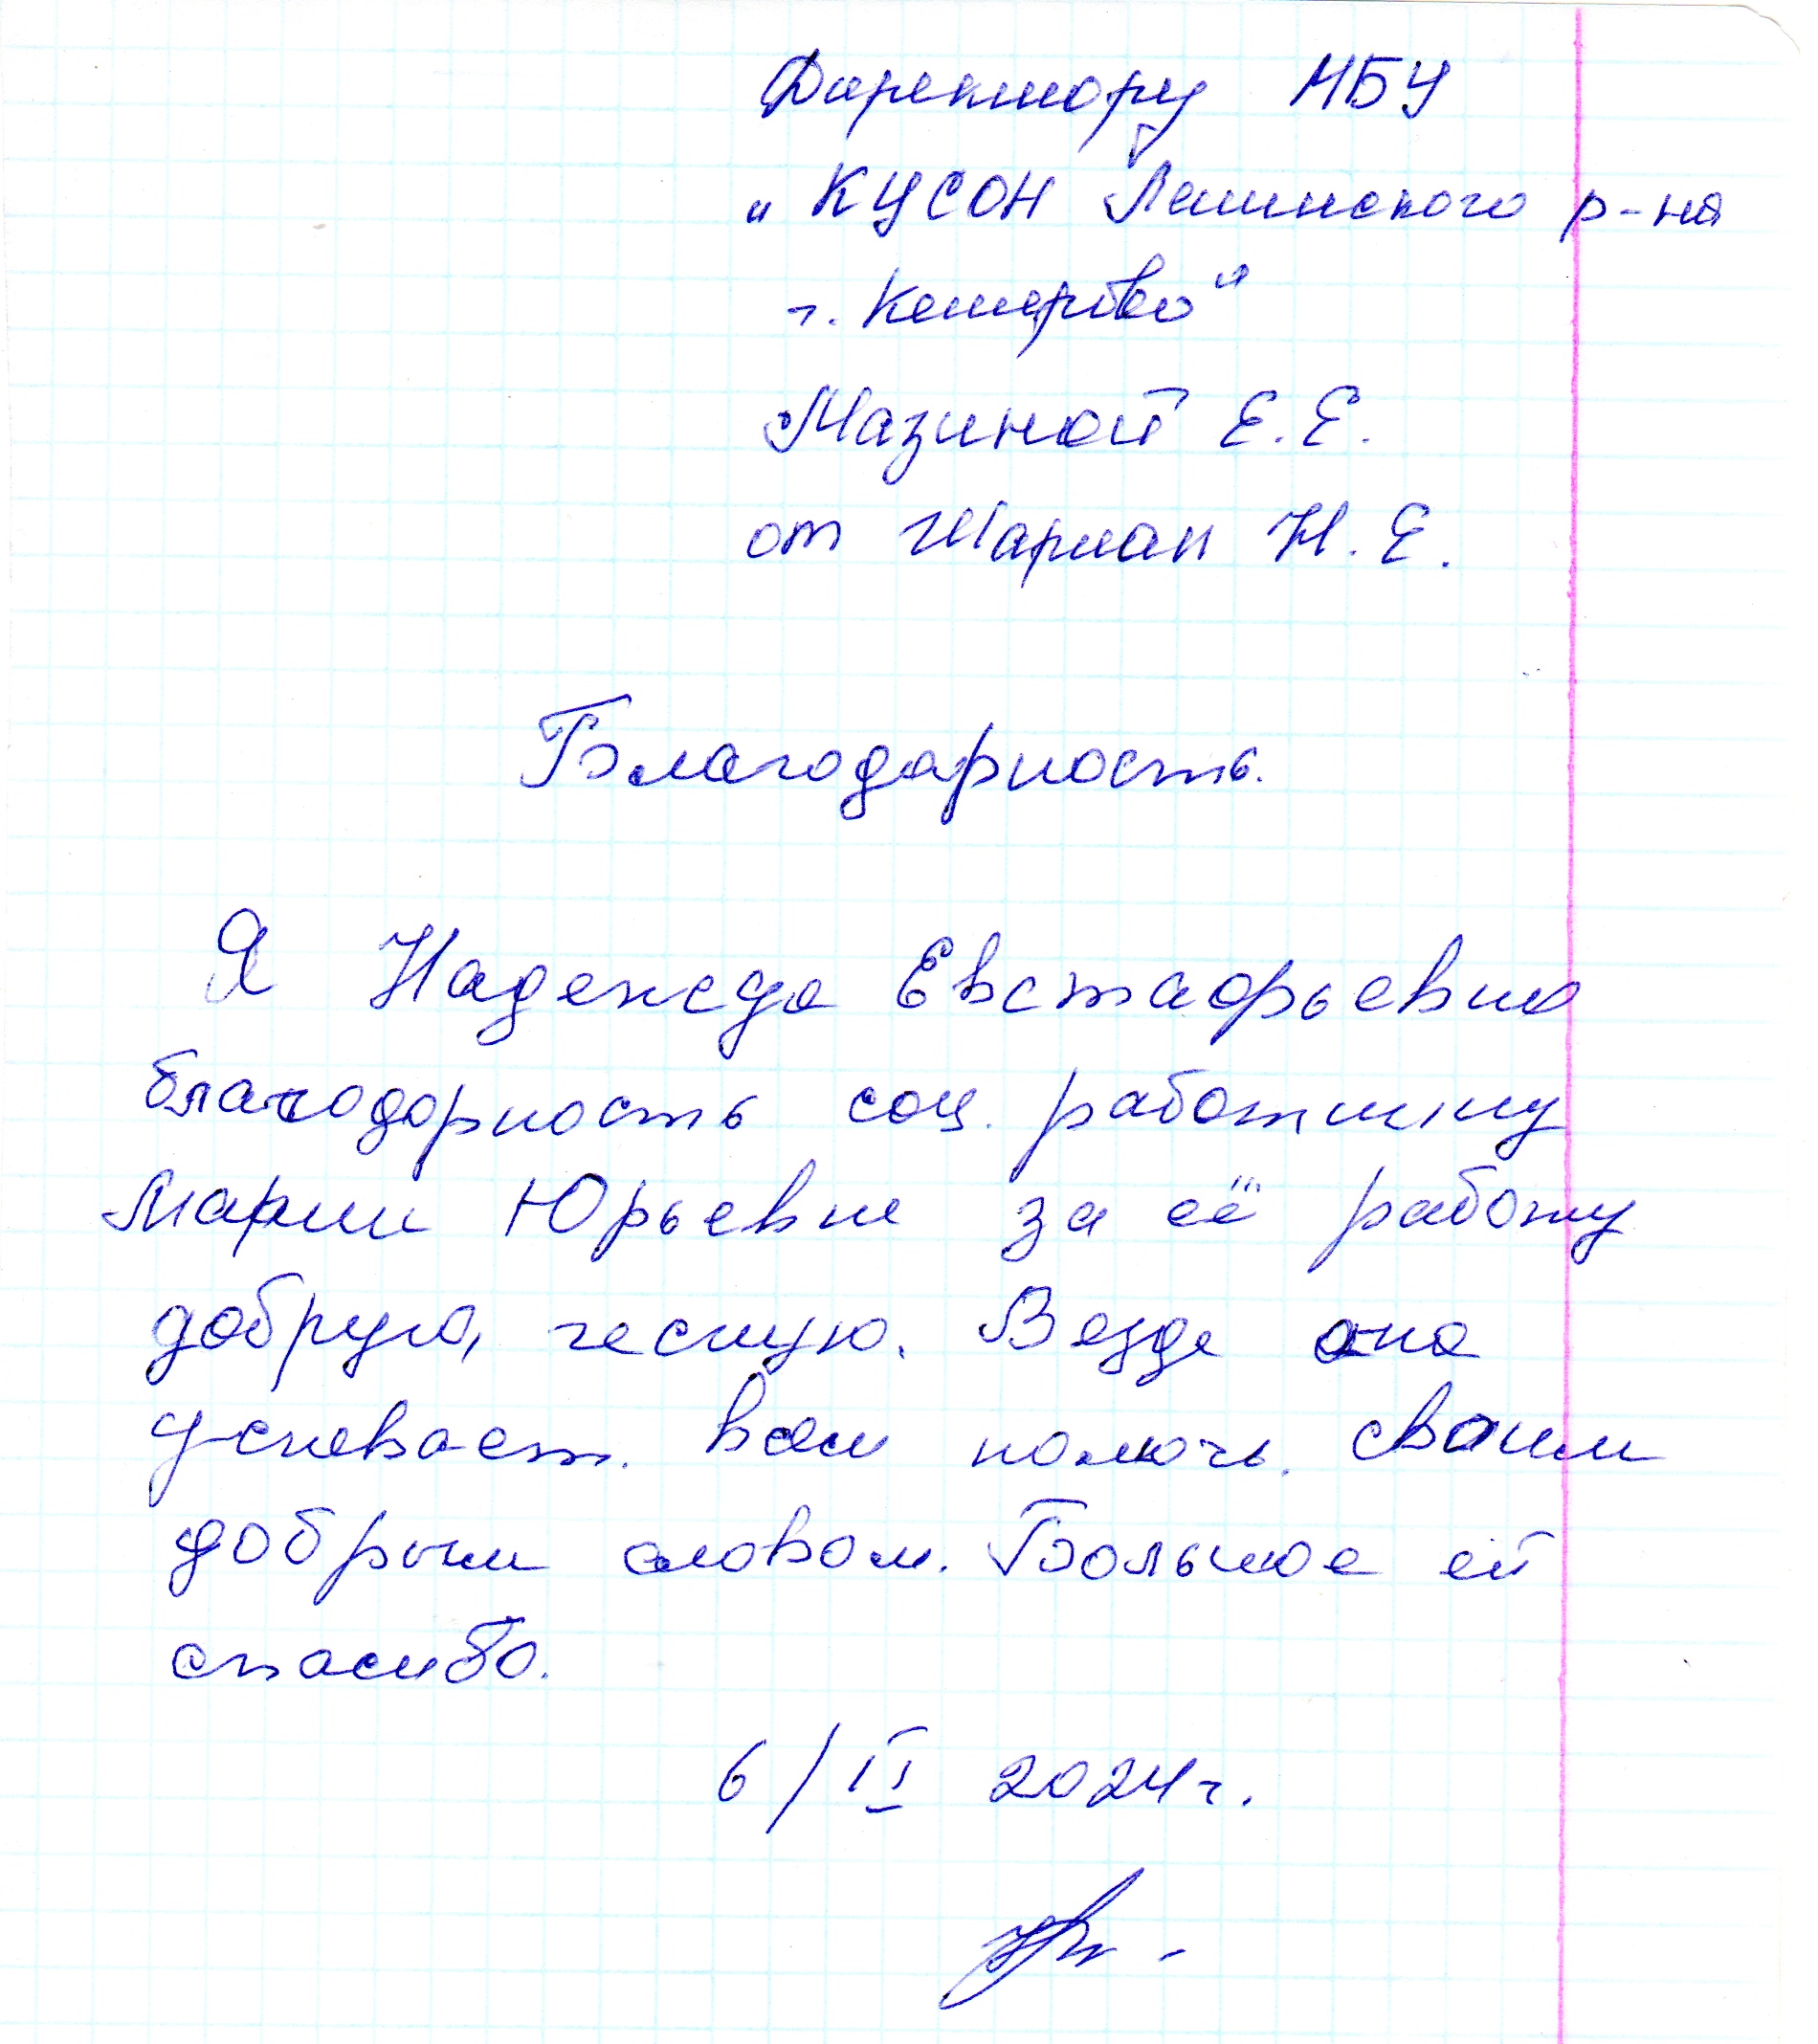 Директору МБУ
"КЦСОН Ленинского р-на
г. Кемерово"
Мазиной Е.Е.
от Шарман Н.Е.
Благодарность.
Я Надежда Евстафьевна
благодарность соц. работнику
Марии Юрьевне за её работу
добрую, чесную. Везде она
успевает. Всем помочь. Своим
добрым словом. Большое ей
спасибо.
6/II 2024г.